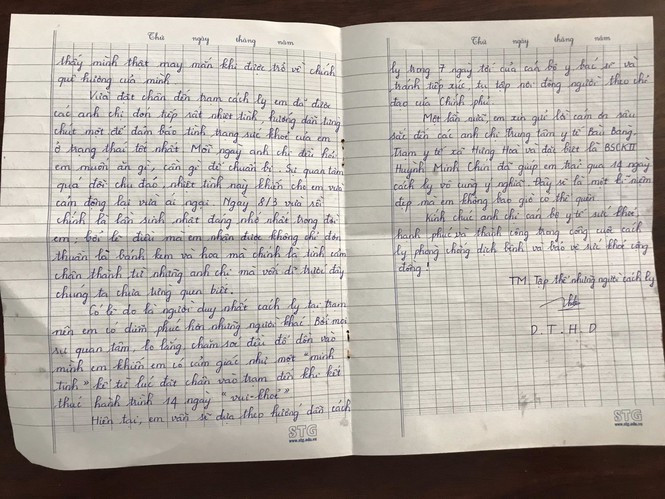 Thứ ngày tháng năm
thấy mình thật may mắn khi được trở về chính
quê hương của mình.
Vừa đặt chân đến trạm cách ly em đã được
các anh chị đón tiếp rất nhiệt tình, hướng dẫn từng
chút một để đảm bảo tình trạng sức khoẻ của em
ở trạng thái tốt nhất. Mỗi ngày anh chị đều hỏi
em muốn ăn gì, cần gì để chuẩn bị. Sự quan tâm
quá đỗi chu đáo, nhiệt tình này khiến cho em vừa
cảm động lại vừa ái ngại. Ngày 8/3 vừa rồi
chính là lần sinh nhật đáng nhớ nhất trong đời
em, bởi lẽ điều mà em nhận được không chỉ đơn
thuần là bánh kem và hoa mà chính là tình cảm
chân thành từ những anh chị mà vốn dĩ trước đây
chúng ta chưa từng quen biết.
Có lẽ do là người duy nhất cách ly tại trạm
nên em có diễm phúc hơn những người khác. Bởi mọi
sự quan tâm, lo lắng, chăm sóc đều đổ dồn vào
mình em khiến em có cảm giác như một "minh
tinh" kể từ lúc đặt chân vào trạm đến khi kết
thúc hành trình 14 ngày "vui - khoẻ"
Hiện tại, em vẫn sẽ dựa theo hướng dẫn cách
STG
www.stg.edu.vn
Thứ ngày tháng năm
ly trong 7 ngày tới của cán bộ y bác sĩ và
tránh tiếp xúc, tụ tập nơi đông người theo chỉ
đạo của Chính phủ.
Một lần nữa, em xin gửi lời cảm ơn sâu
sắc đến các anh chị Trung tâm y tế Bàu Bàng
Trạm y tế xã Hưng Hoà và đặt biệt là BSCKII
Huỳnh Minh Chín đã giúp em trải qua 14 ngày
cách ly vô cùng ý nghĩa. Đây sẽ là một kỉ niệm
đẹp mà em không bao giờ có thể quên.
Kính chúc anh chị cán bộ y tế sức khoẻ,
hạnh phúc và thành công trong công cuộc cách
ly phòng chống dịch bệnh và bảo vệ sức khoẻ cộng
đồng!
TM Tập thể những người cách ly
D.T.H.D
STG
www.stg.edu.vn